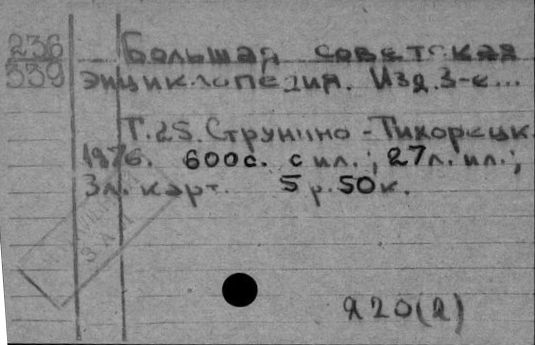 236
339
Большая советская
энциклопедия. Изд. 3-е...
Т. 25. Струнино - Тихорецк.
1976. 600с. с ил.; 27л. ил.;
3л. карт. 5 р. 50к.
ЗАЛ
Я20(2)